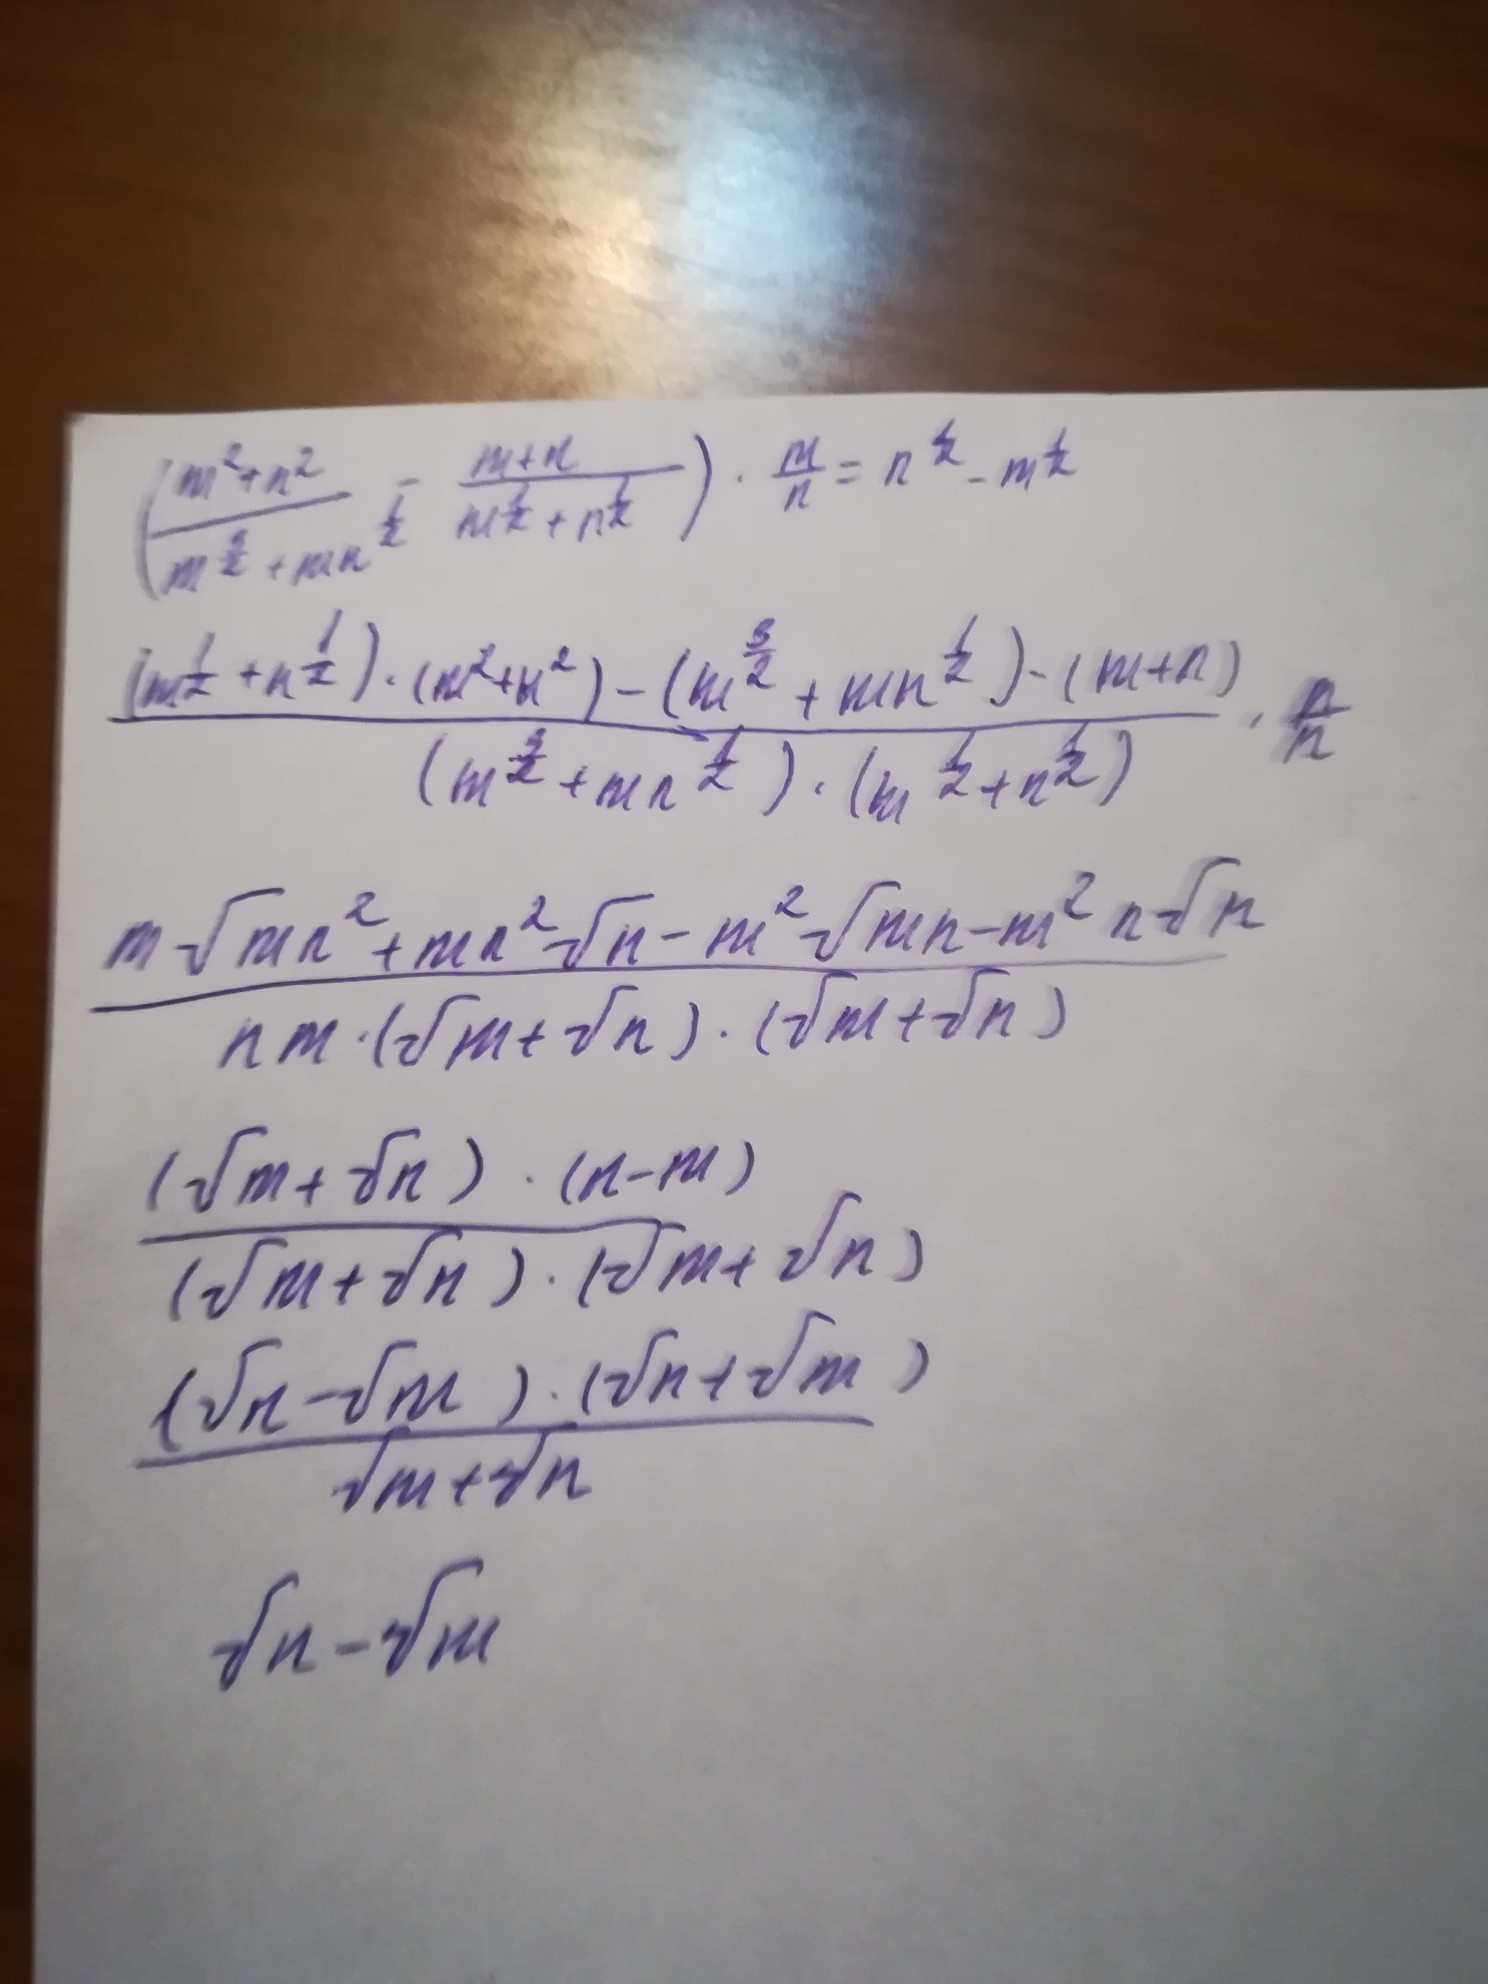 (m²+n² / m^(3/2) + mn^(1/2) - m+n / m^(1/2) + n^(1/2)) · m/n = n^(1/2) - m^(1/2)
(m^(1/2) + n^(1/2)) · (m²+n²) - (m^(3/2) + mn^(1/2)) - (m+n) / (m^(3/2) + mn^(1/2)) · (m^(1/2) + n^(1/2)) ·
m√mn² + mn²√n - m²√mn - m²n√n / nm · (√m + √n) · (√m + √n)
(√m + √n) · (n-m) / (√m + √n) · (√m + √n)
(√n - √m) · (√n + √m) / √m + √n
√n - √m